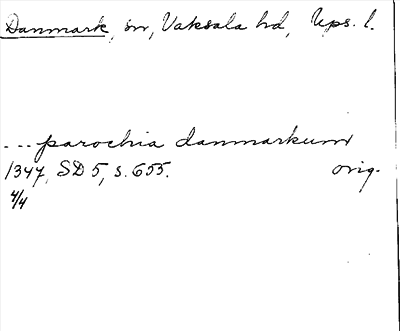 Danmark, sn, Vaksala hd, Ups. l.
... parochia danmarkum
1347, SD 5, s. 655. orig.
4/4